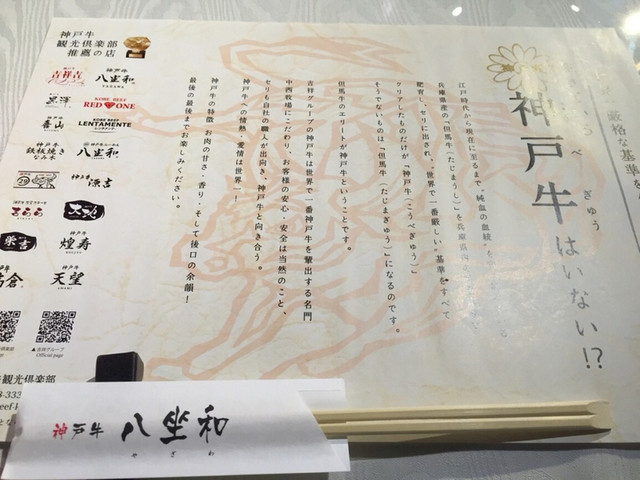 神戸牛
観光倶楽部
推薦の店
神戸牛
吉祥吉
神戸牛
八坐和
YAZAWA
黒澤
KOBE BEEF
RED ONE
KOBE BEEF
LENTAMENTE
神戸牛
鉄板焼き
なみ木
八坐和
神戸牛
源吉
神戸牛
煌寿
神戸牛
天望
▲吉祥グループ
Official page
観光倶楽部
厳格な基準
ぎゅう
神戸牛はいない!?
江戸時代から現在に至るまで、純血の血統
兵庫県産の「但馬牛(たじまうし)」を兵庫県内の
肥育し、セリに出され、"世界で一番厳しい"基準をすべて
クリアしたものだけが「神戸牛(こうべぎゅう)」
そうでないものは「但馬牛(たじまぎゅう)」になるのです。
但馬牛のエリートが神戸牛ということです。
吉祥グループの神戸牛は世界で一番神戸牛を輩出する名門
中西牧場にこだわり、お客様の安心・安全は当然のこと、
セリも自社の職人が出向き、神戸牛と向き合う。
神戸牛への情熱・愛情は世界一!
神戸牛の特徴、お肉の甘さ・香り・そして後口の余韻!
最後の最後までお楽しみください。
神戸牛 八坐和
やざわ